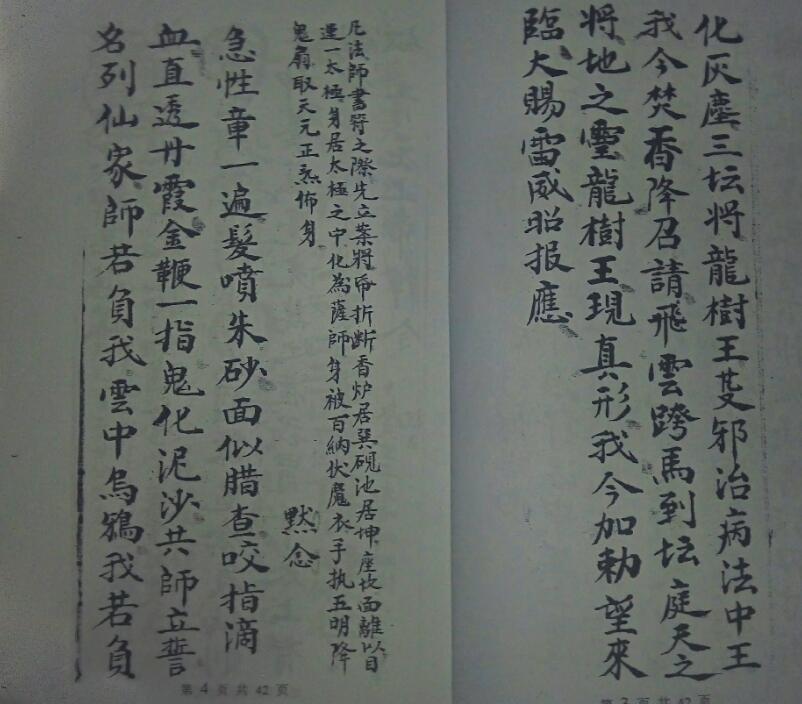 化灰塵三坛将龍樹王䒑邪治病法中王
我今焚香降召請飛雲跨馬到坛庭天之
将地之靈龍樹王現真形我今加勅望來
臨大賜雷威昭报應
第 3 页 共 42 页
凡法師書符之際先立案将帋折断香炉居巽硯池居坤座坎面離以自
運一太極身居太極之中化為薩師身被百納伏魔衣手执五明降
鬼扇取天元正炁佈身
默念
急性章一遍髮噴朱砂面似腊查咬指滴
血直透丹霞金鞭一指鬼化泥沙共師立誓
名列仙家師若負我雲中烏鴉我若負
第 4 页 共 42 页